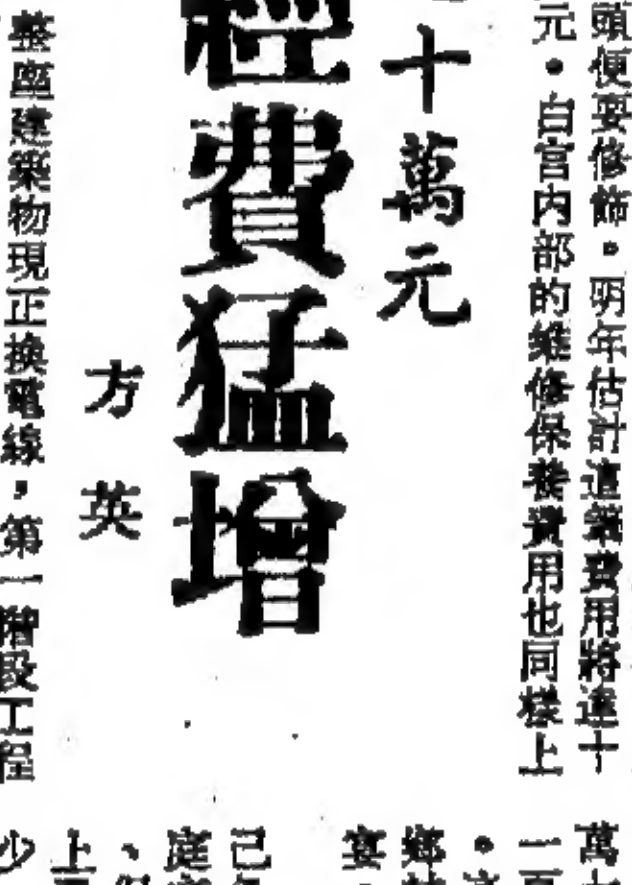 頭便要修飾。明年估計這筆費用將達十
元。白宮內部的維修保養費用也同樣上
十萬元
經費猛增
方英
整座建築物現正換電線,第一階段工程
萬
一百
。
鄉
宴
己
庭
、
上
少